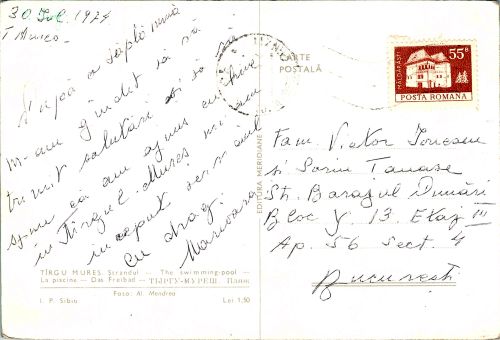 30 Iul. 1974
T Mureș.
Și apoi o săptămînă
m-am gîndit să vă
trimit salutări și să vă
spun că am ajuns cu bine
în Tîrgul Mureș
început serviciul
Cu drag
Marioara
TÎRGU MUREȘ. Ștrandul — The swimming-pool —
La piscine — Das Freibad — ТЫРГУ-МУРЕШ. Пляж
Foto: Al Mendrea
I. P. Sibiu
Lei 1,50
EDITURA MERIDIANE
CARTE
POȘTALĂ
MĂLDĂREȘTI
55 B
POSTA ROMANA
Fam. Victor Ionescu
si Sorin Tanase
Str. Barajul Dunării
Bloc Y. 13. Etaj III
Ap. 56 Sect. 4
București